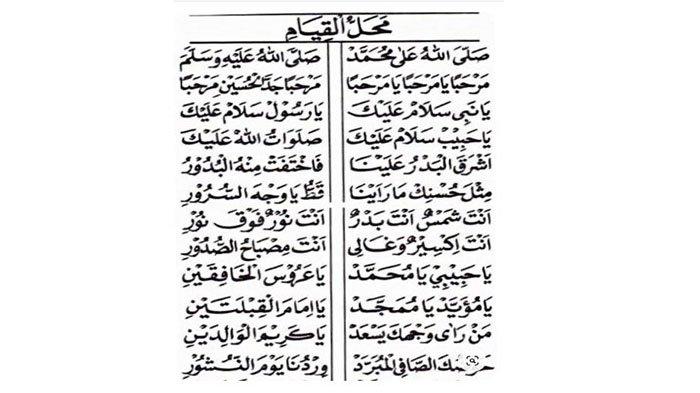 مَحَلُّ الْقِيَامِ
صَلَّى اللهُ عَلَى مُحَمَّدْ صَلَّى اللهُ عَلَيْهِ وَسَلَّمْ
مَرْحَبًا يَا مَرْحَبًا يَا مَرْحَبًا مَرْحَبًا جَدَّ الْحُسَيْنِ مَرْحَبًا
يَا نَبِى سَلَامْ عَلَيْكَ يَا رَسُوْلْ سَلَامْ عَلَيْكَ
يَا حَبِيْبْ سَلَامْ عَلَيْكَ صَلَوَاتُ اللهْ عَلَيْكَ
اَشْرَقَ الْبَدْرُ عَلَيْنَا فَاخْتَفَتْ مِنْهُ الْبُدُوْرُ
مِثْلَ حُسْنِكْ مَا رَاَيْنَا قَطُّ يَا وَجْهَ السُّرُوْرِ
اَنْتَ شَمْسٌ اَنْتَ بَدْرٌ اَنْتَ نُوْرٌ فَوْقَ نُوْرٍ
اَنْتَ اِكْسِيْرٌ وَغَالِى اَنْتَ مِصْبَاحُ الصُّدُوْرِ
يَا حَبِيْبِيْ يَا مُحَمَّدْ يَا عَرُوْسَ الْخَافِقَيْنِ
يَا مُؤَيَّدْ يَا مُمَجَّدْ يَا اِمَامَ الْقِبْلَتَيْنِ
مَنْ رَاٰى وَجْهَكَ يَسْعَدْ يَا كَرِيْمَ الْوَالِدَيْنِ
حَوْضُكَ الصَّافِى الْمُبَرَّدْ وِرْدُنَا يَوْمَ النُّشُوْرِ